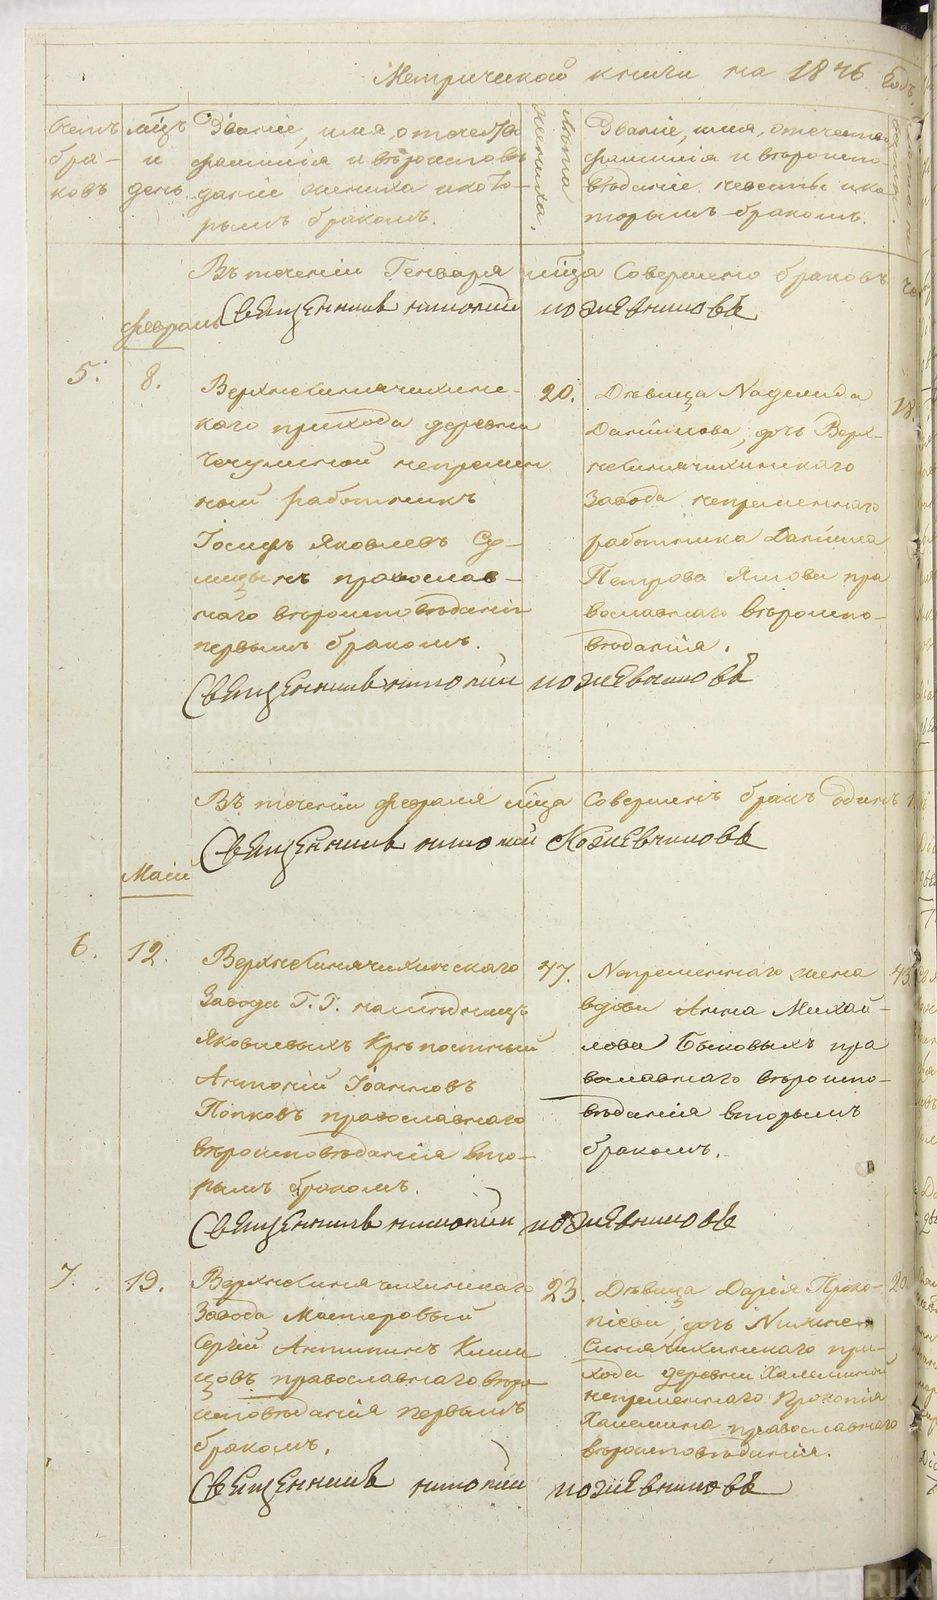 Метрической книги на 1846 годъ.
Счетъ бра- ковъ
мѣцъ и день
Званіе, имя, отечество
фамилія и вѣроисповѣ-
даніе жениха и кото-
рымъ бракомъ.
Лѣта жениха.
Званіе, имя, отечество
фамилія и вѣроиспо-
вѣданіе невѣсты и ко-
торымъ бракомъ.
Въ теченіи Генваря мѣца Совершено браковъ че
Священникъ Николай Кожевниковъ
февраль
5. 8.
Верхнесинячихинс-
каго прихода деревни
непремен
ный работникъ
Іосифъ Яковлевъ
православ-
наго вѣроисповѣданія
первымъ бракомъ.
20.
Дѣвица Надежда
Даніилова, дочь Верх-
несинячихинскаго
Завода непременнаго
работника Даніила
Петрова пра
вославнаго вѣроиспо-
вѣданія.
18
Священникъ Николай Кожевниковъ
Въ теченіи февраля мѣца Совершенъ бракъ одинъ 1
Священникъ Николай Кожевниковъ
Маій
6. 12.
Верхнесинячихинскаго
Завода Г. Г. наслѣдницъ
Яковлевыхъ Крѣпостный
Антоній Іоанновъ
Попковъ православнаго
вѣроисповѣданія вто-
рымъ бракомъ.
47.
Непременнаго жена
вдова Анна Михай-
лова Быковыхъ пра
вославнаго вѣроиспо-
вѣданія вторымъ
бракомъ.
43
Священникъ Николай Кожевниковъ
7. 19.
Верхнесинячихинскаго
Завода Мастеровый
Сергій Антипинъ
православнаго вѣро
исповѣданія первымъ
бракомъ.
23.
Дѣвица Дарія Проко-
піева, дочь Нижне-
Синячихинскаго при-
хода деревни Халеминой
непременнаго Прокопія
Халемина православнаго
вѣроисповѣданія.
20.
Священникъ Николай Кожевниковъ
METRIKI.GASO-URAL.RU